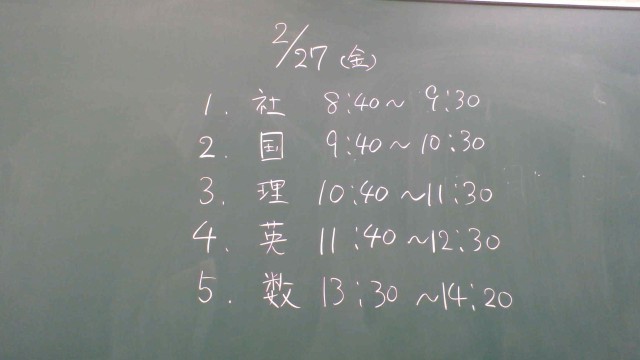 2/27 (金)
1. 社 8:40～9:30
2. 国 9:40～10:30
3. 理 10:40～11:30
4. 英 11:40～12:30
5. 数 13:30～14:20